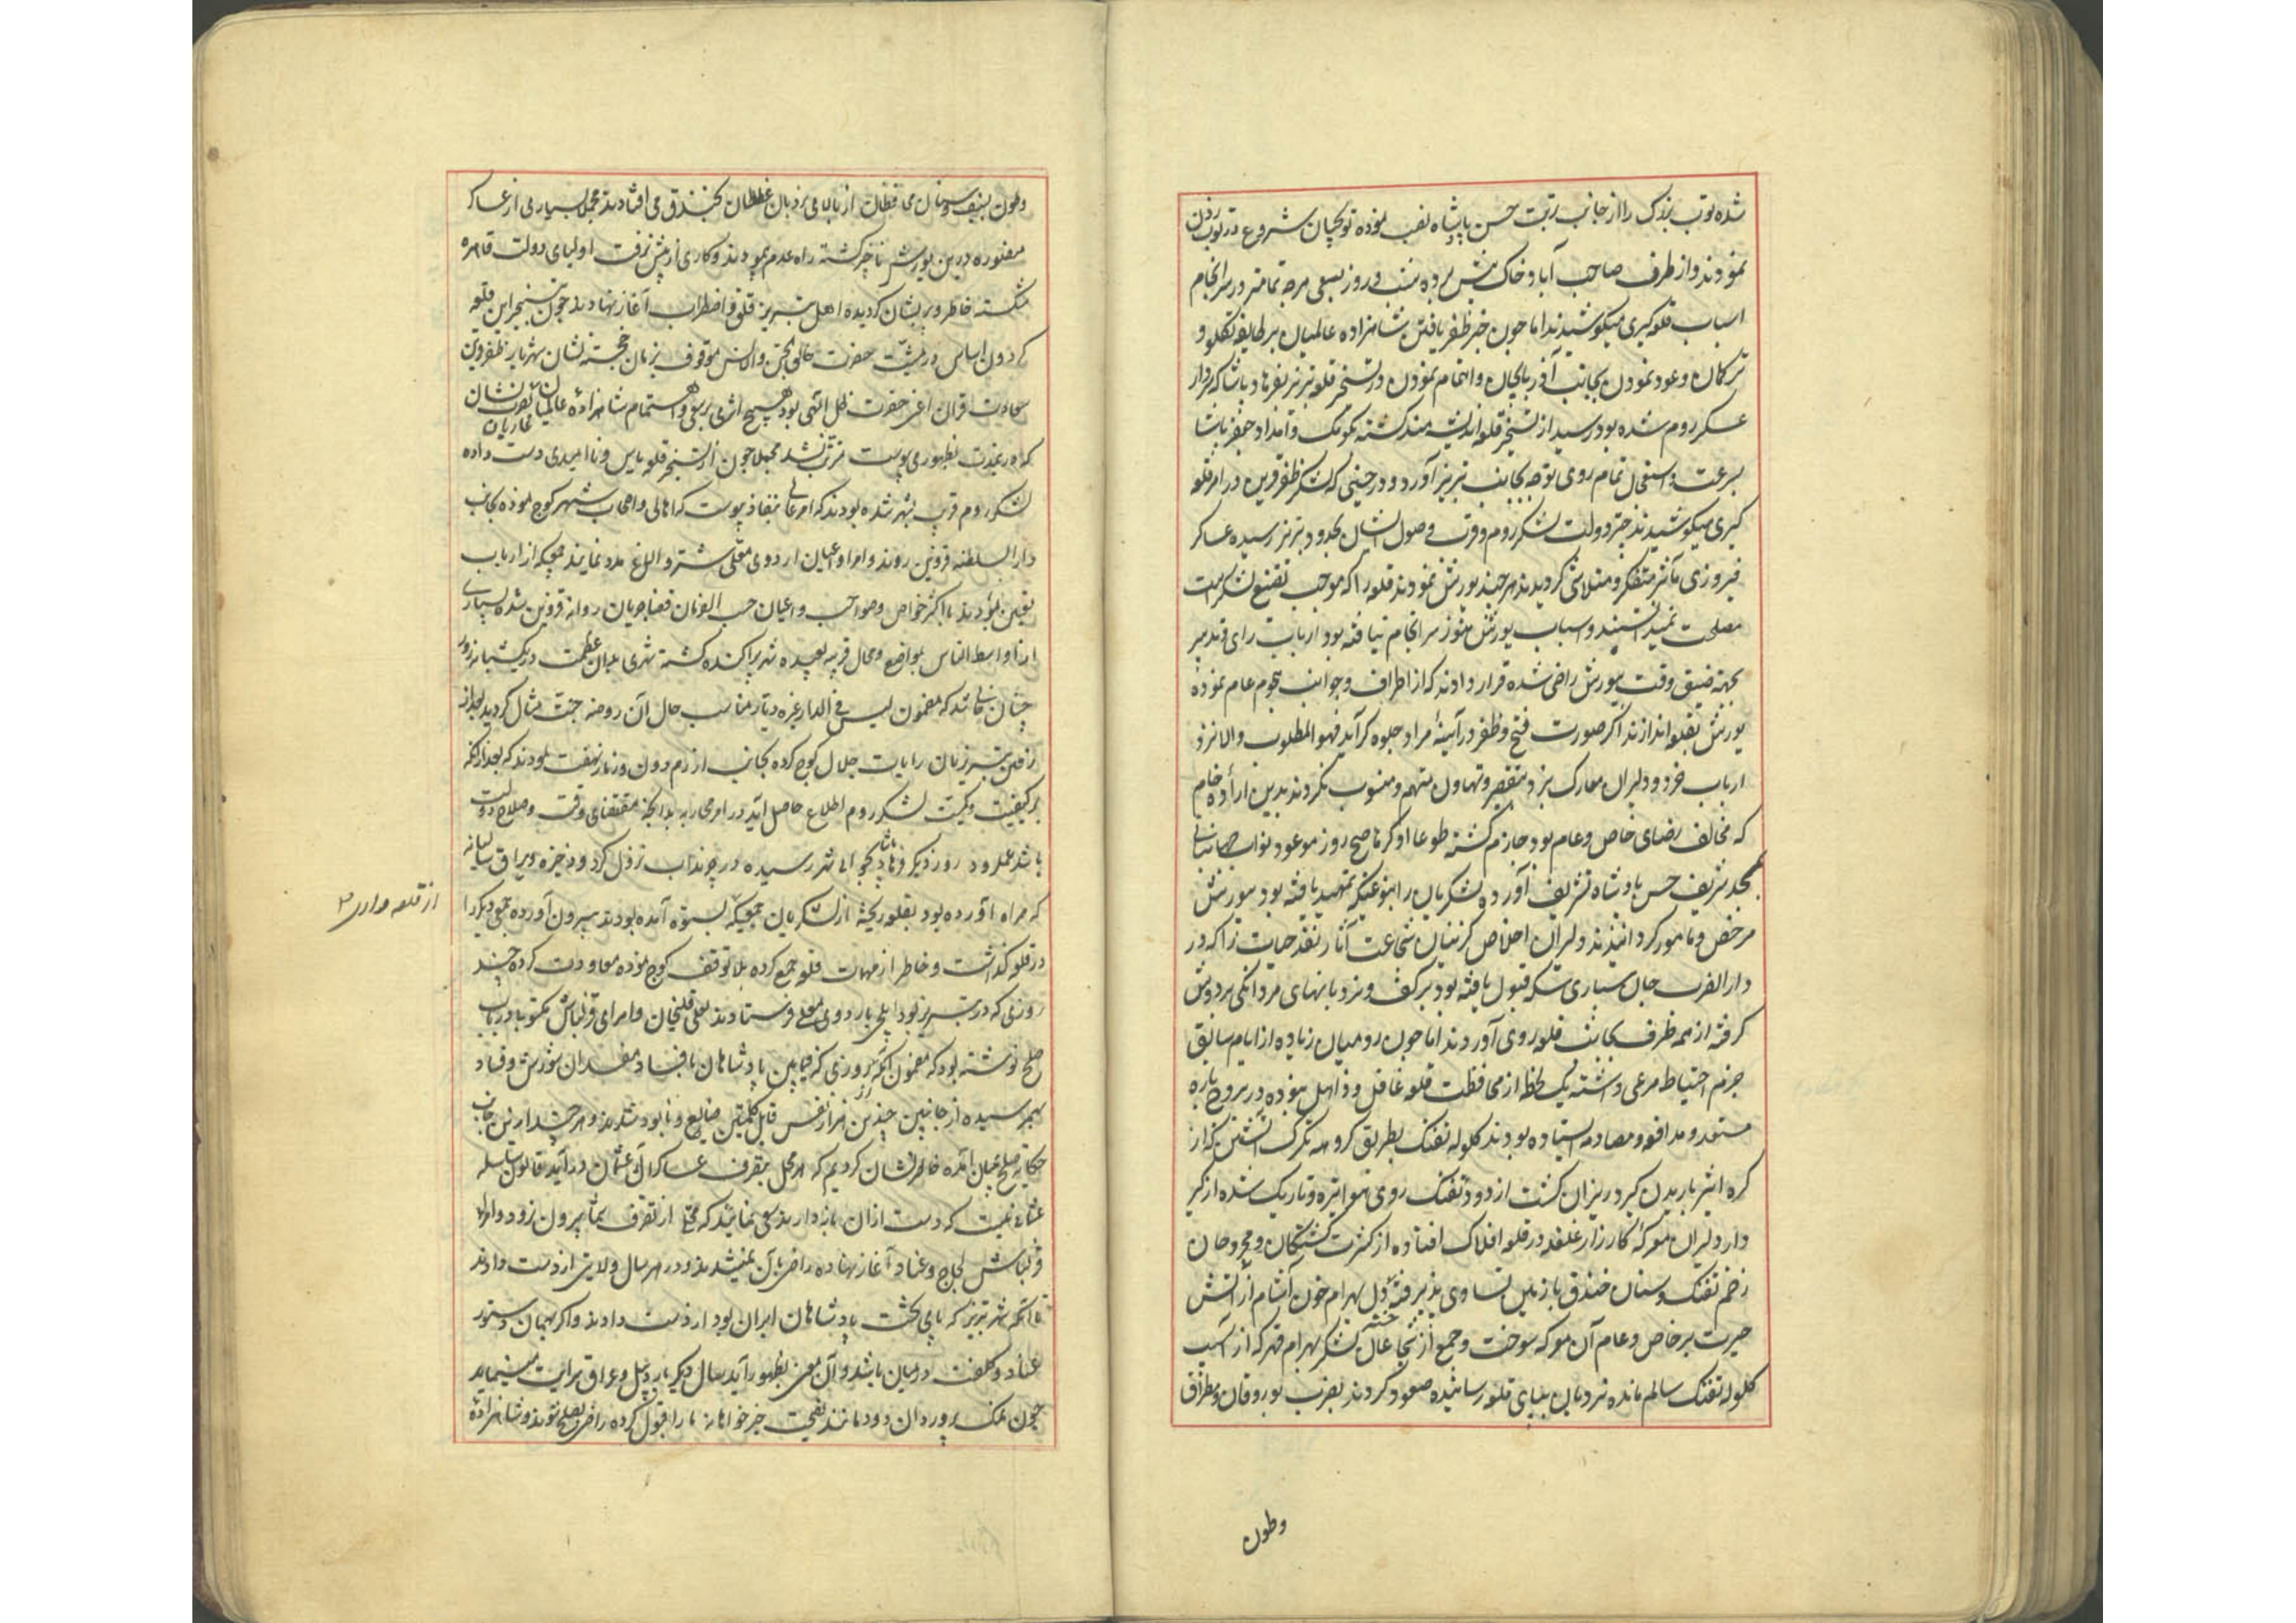 شده توپ بزرک را از جانب تربت حسن پادشاه نصب نموده توپچیان شروع در توپ زدن
نمودند و از طرف صاحب آباد خاک پیش برده شب و روز بسعی هر چه تمامتر در سرانجام
اسباب قلعه کیری میکوشیدند اما چون خبر ظفر یافتن شاهزاده عالمیان بر طایفه تکلو و
ترکمان و عود نمودن بجانب آذربایجان و اهتمام نمودن در تسخیر قلعه تبریز بفرهاد پاشا که سردار
عسکر روم شده بود رسید از تسخیر قلعه اندیشه مند کشته بکومک و امداد جعفر پاشا
بسرعت و استعجال تمام روی توجه بجانب تبریز آورد و در حینی که لشکر ظفر قرین در امر قلعه
کیری میکوشیدند خبر دولت لشکر روم و قرب وصول ایشان بحدود تبریز رسیده عساکر
فیروزی مآثر متفکر و متلاشی کردیدند هر چند یورش نمودن قلعه را که موجب تضییع لشکر است
مصلحت نمیدانستند و اسباب یورش هنوز سرانجام نیافته بود ارباب رای و تدبیر
بجهة ضیق وقت بیورش راضی شده قرار دادند که از اطراف و جوانب هجوم عام نموده
یورش بقلعه اندازند اکر صورت فتح و ظفر در آیینهٔ مراد جلوه کر آید فهو المطلوب و الا نزد
ارباب خرد و دلیران معارک نبرد بتقصیر و تهاون متهم و منسوب نکردند بدین ارادهٔ خام
که مخالف رضای خاص و عام بود جازم کشته طوعا او کرها صبح روز موعود نواب جهانبانی
بمسجد شریف حسن پادشاه تشریف آورده لشکریان را بنوعیکه تمهید یافته بود بیورش
مرخص و مامور کردانیدند دلیران اخلاص کزین شجاعت آثار نقد حیات را که در
دار الضرب جان سپاری سکه قبول یافته بود بر کف و نردبانهای مردانکی بر دوش
کرفته از همه طرف بجانب قلعه روی آوردند اما چون رومیان زیاده از ایام سابق
حزم احتیاط مرعی داشته یک لحظه از محافظت قلعه غافل و ذاهل نبوده در بروج و باره
مستعد و مدافعه و مصادمه ایستاده بودند کلوله تفنک بطریق کروهه تکرک آتشین که از
کره اثیر باریدن کیرد ریزان کشت از دود تفنک روی هوا تیره و تاریک شده از کیر
و دار دلیران معرکه کارزار غلغله در قلعه افلاک افتاده از کثرت کشتکان و مجروحان
زخم تفنک و سنان خندق با زمین تساوی پذیرفته دل بهرام خون آشام از آتش
حیرت بر خاص و عام آن معرکه سوخت و جمع از شجاعان لشکر بهرام قهر که از آسیب
کلوله تفنک سالم مانده نردبان بپای قلعه رسانیده صعود کردند بضرب بوروقان و مطراق
وطون
وطون سیف و سنان محافظان از بالای نردبان غلطان بخندق می افتادند مجملا بسیاری از عساکر
منصوره درین یورش ناچیز کشته راه عدم پیمودند و کاری از پیش نرفت اولیای دولت قاهره
شکسته خاطر و پریشان کردیده اهل تبریز قلق و اضطراب آغاز نهادند چون تسخیر این قلعه
کردون اساس در مشیت حضرت خالق الجن و الانس موقوف بزمان خجسته نشان شهریار ظفر قرین
سعادت قران اعنی حضرت ظل الهی بود هیچ اثری بر سعی و اهتمام شاهزاده عالمیان و
غازیان نصرت نشان
که در نمدت بظهور می پیوست مترتب نشد مجملا چون از تسخیر قلعه یاس و نا امیدی دست داده
لشکر روم قریب بشهر شده بودند که امر عالی بنفاذ پیوست که اهالی و اصحاب شهر کوچ نموده بجانب
دار السلطنه قزوین روند و امرا و اعیان اردوی معلی شتر و الاغ مدد نمایند جمعیکه از ارباب
تعین بودند با اکثر خواص و صواحب و اعیان حسب الفرمان قضا جریان روانه قزوین شده بسیاری
از ادنا و اوسط الناس بمواضع و محال قریبه و بعیده شهر پراکنده کشته شهری بدان عظمت در یکشبانه روز
چنان خالی ماند که مضمون لیس فی الدار غیره دیار مناسب حال آن روضه جنت مثال کردید بعد از
رفتن تبریزیان رایات جلال کوچ کرده بجانب ازرم دون و زنار نهضت نمودند که بعد از آنکه
بر کیفیت و کمیت لشکر روم اطلاع حاصل آید در امر محاربه بدانچه مقتضای وقت و صلاح دولت
باشد عمل رود روز دیکر فرهاد پاشا بحوالی شهر رسیده در چرنداب نزول کرد و ذخیره و یراق سالیانه
که همراه آورده بود بقلعه ریخته از لشکریان جمعیکه بستوه آمده بودند بیرون آورده جمعی دیکر را
از قلعه داری
در قلعه کذاشت و خاطر از مهمات قلعه جمع کرده بلا توقف کوچ نموده معاودت کرده چند
روزی که در تبریز بود ایلچی باردوی معلی فرستادند بعلی قلیخان و امرای قزلباش مکتوبها در باب
صلح نوشته بود که مضمون آنکه روزی که فیمابین پادشاهان بافساد مفسدان شورش و فساد
بهم رسیده از جانبین چندین هزار نفس قابل کلمتین ضایع و نابود شدند و هر چند از این جانب
حکایه صلح بمیان آمده خاطر نشان کردیم که هر محل بتصرف عساکر آل عثمان در آید قانون سلسله
عثمانی نیست که دست از ان باز دارند سعی نمائید که محلی از تصرف شما بیرون نرود و امرای
قزلباش لجاج و عناد آغاز نهاده راضی بآن نمیشدند و در هر سال ولایتی از دست دادند
تا آنکه شهر تبریز که پای تخت پادشاهان ایران بود از دست دادند و اکر بهمان دستور
عناد و کلفت در میان باشد و آن معنی بظهور آید سال دیکر باردبیل و عراق سرایت مینماید
چون نمک پروردان دودمانند نصیحت خیرخواهانه ما را قبول کرده راضی بصلح شوند و شاهزاده